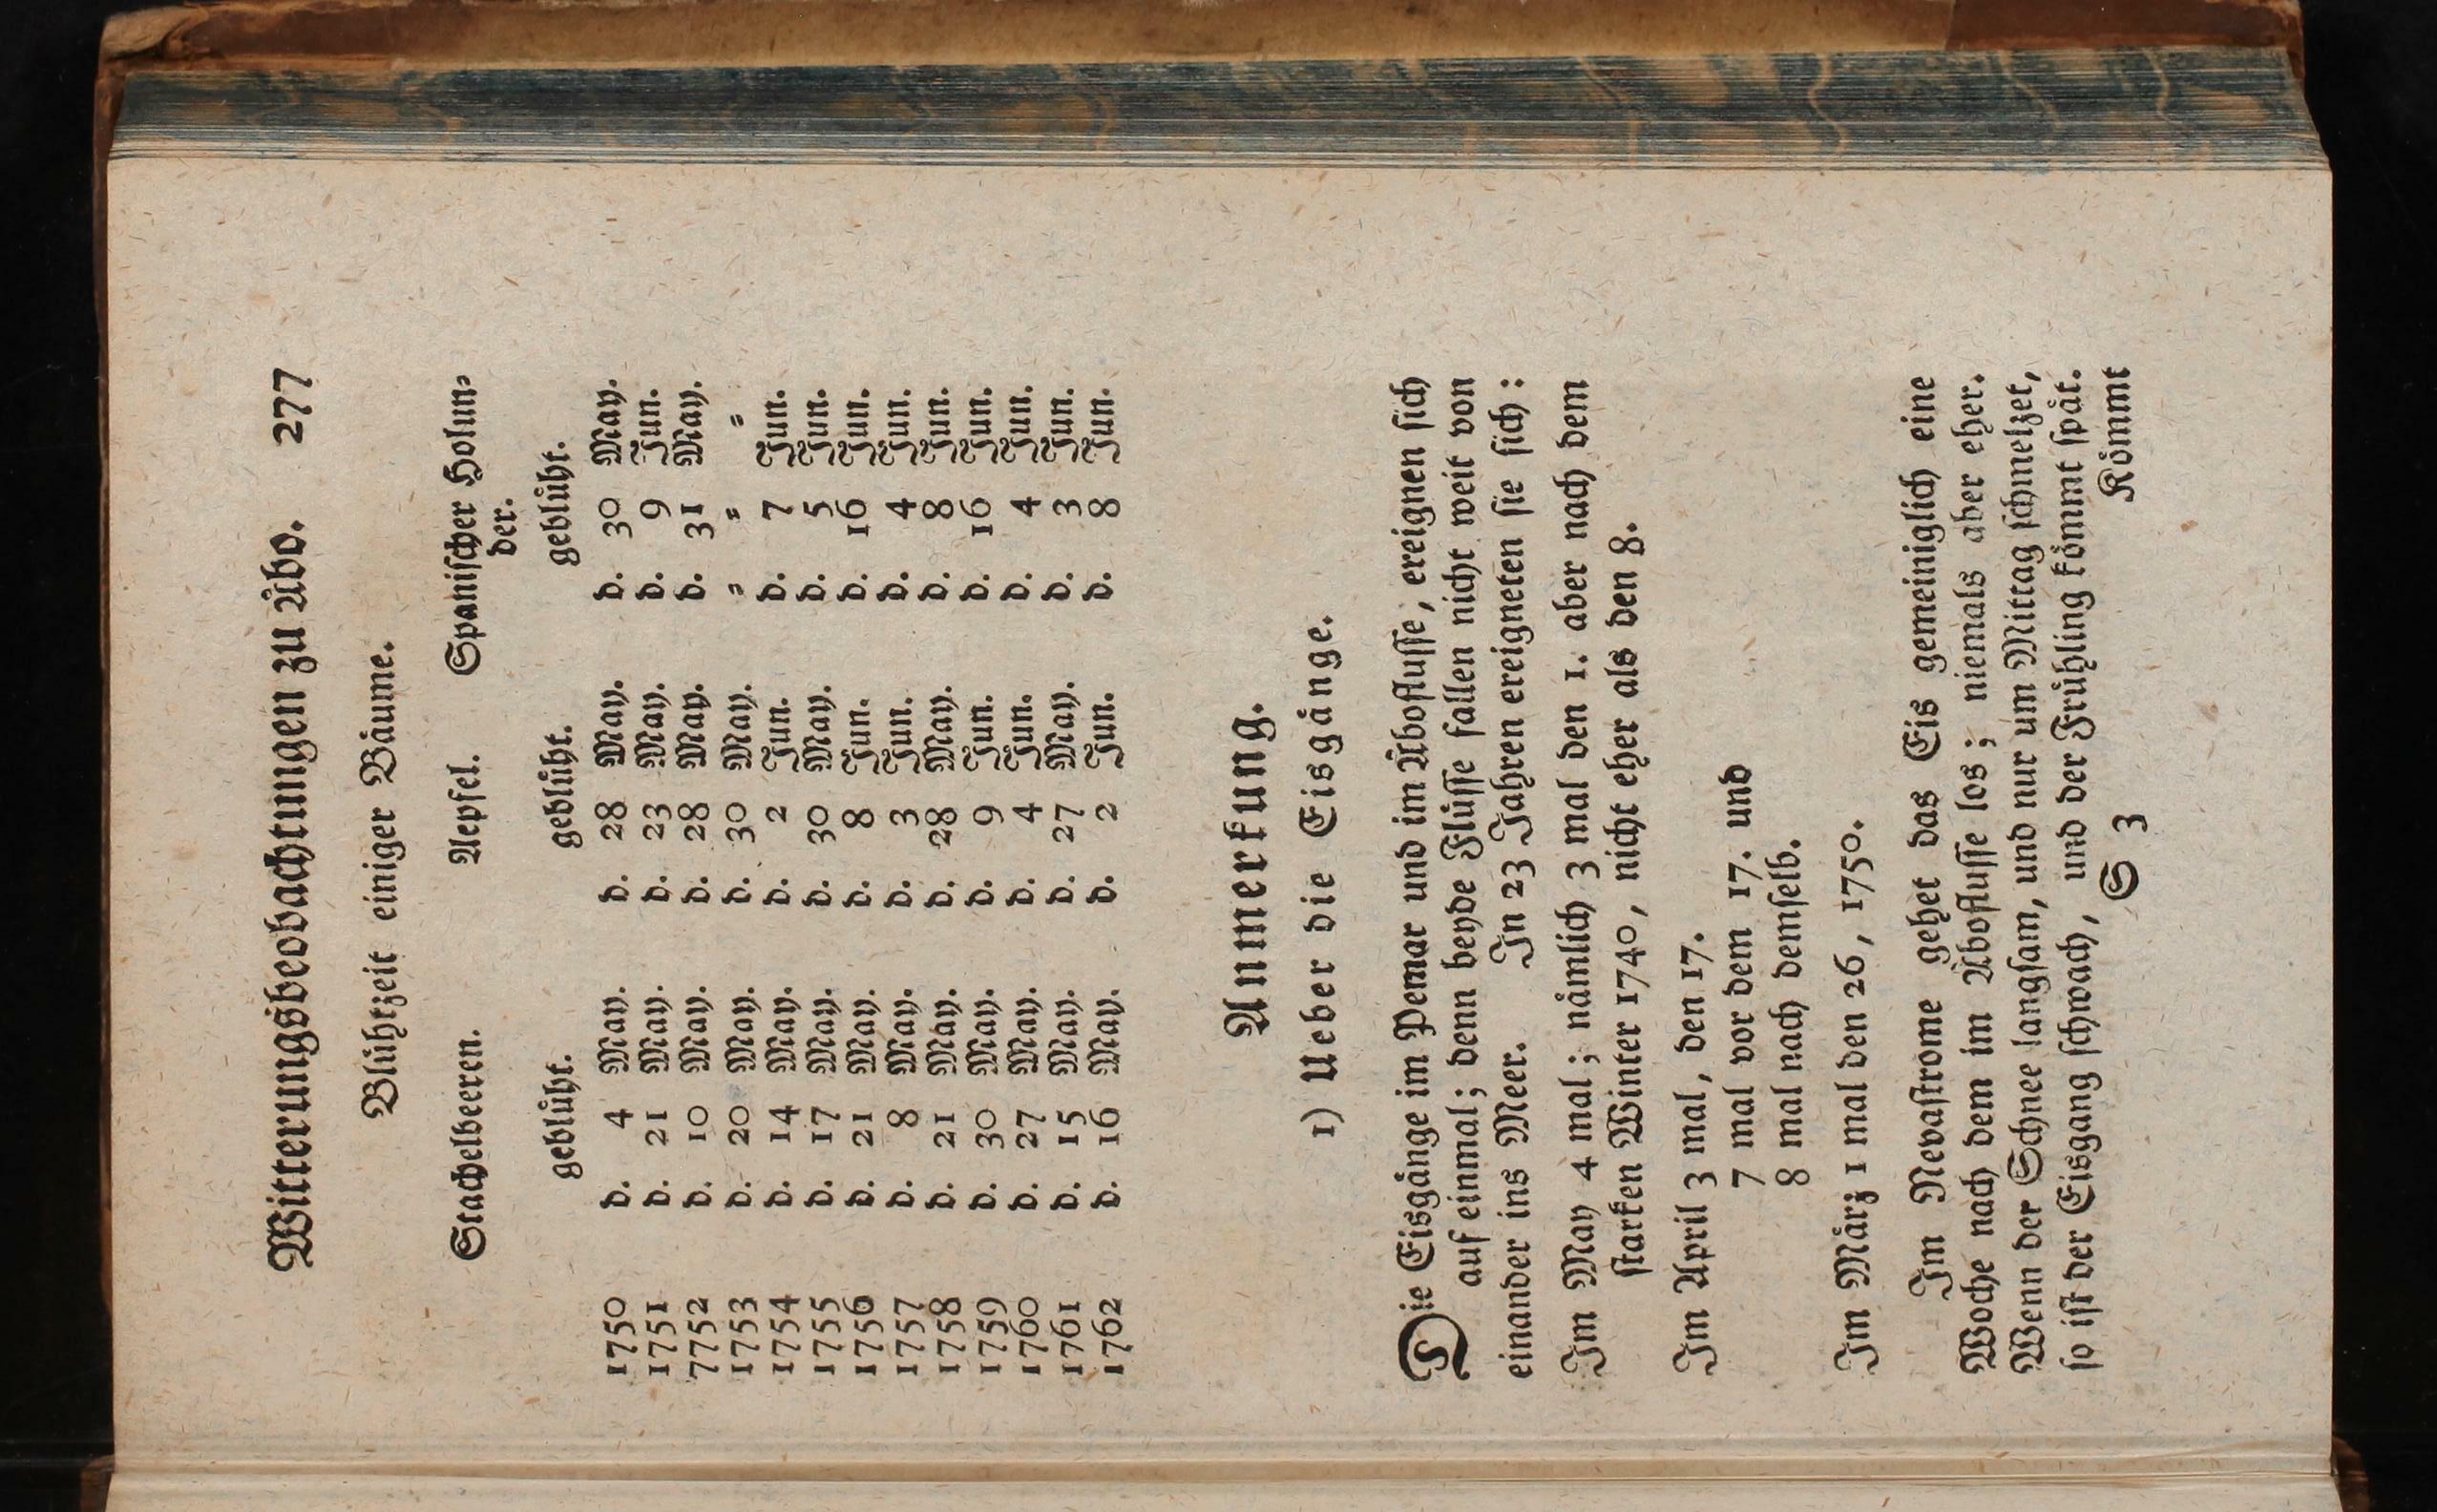 Witterungsbeobachtungen zu Åbo. 277
Blühtzeit einiger Bäume.
Stachelbeeren. Aepfel. Spanischer Holun-
der.
geblüht. geblüht. geblüht.
1750 d. 4 May. d. 28 May. d. 30 May.
1751 d. 21 May. d. 23 May. d. 9 Jun.
7752 d. 10 May. d. 28 May. d. 31 May.
1753 d. 20 May. d. 30 May. = = =
1754 d. 14 May. d. 2 Jun. d. 7 Jun.
1755 d. 17 May. d. 30 May. d. 5 Jun.
1756 d. 21 May. d. 8 Jun. d. 16 Jun.
1757 d. 8 May. d. 3 Jun. d. 4 Jun.
1758 d. 21 May. d. 28 May. d. 8 Jun.
1759 d. 30 May. d. 9 Jun. d. 16 Jun.
1760 d. 27 May. d. 4 Jun. d. 4 Jun.
1761 d. 15 May. d. 27 May. d. 3 Jun.
1762 d. 16 May. d. 2 Jun. d. 8 Jun.
Anmerkung.
1) Ueber die Eisgänge.
Die Eisgänge im Pemar und im Åboflusse, ereignen sich
auf einmal; denn beyde Flüsse fallen nicht weit von
einander ins Meer. In 23 Jahren ereigneten sie sich:
Im May 4 mal; nämlich 3 mal den 1. aber nach dem
starken Winter 1740, nicht eher als den 8.
Im April 3 mal, den 17.
7 mal vor dem 17. und
8 mal nach demselb.
Im März 1 mal den 26, 1750.
Im Nevastrome gehet das Eis gemeiniglich eine
Woche nach dem im Åboflusse los; niemals aber eher.
Wenn der Schnee langsam, und nur um Mittag schmelzet,
so ist der Eisgang schwach, und der Frühling kömmt spät.
S 3 Kömmt